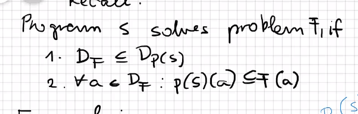 Recall:
Program S solves problem F, if
1. D_F ⊆ D_p(S)
2. ∀a ∈ D_F : p(S)(a) ⊆ F(a)